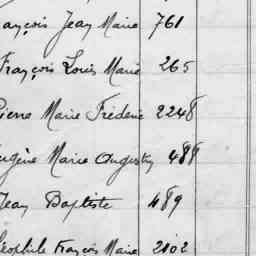 ançois Jean Marie 761
François Louis Marie 265
Pierre Marie Frédéric 2248
Eugène Marie Augustin 488
Jean Baptiste 489
éophile François Marie 2102